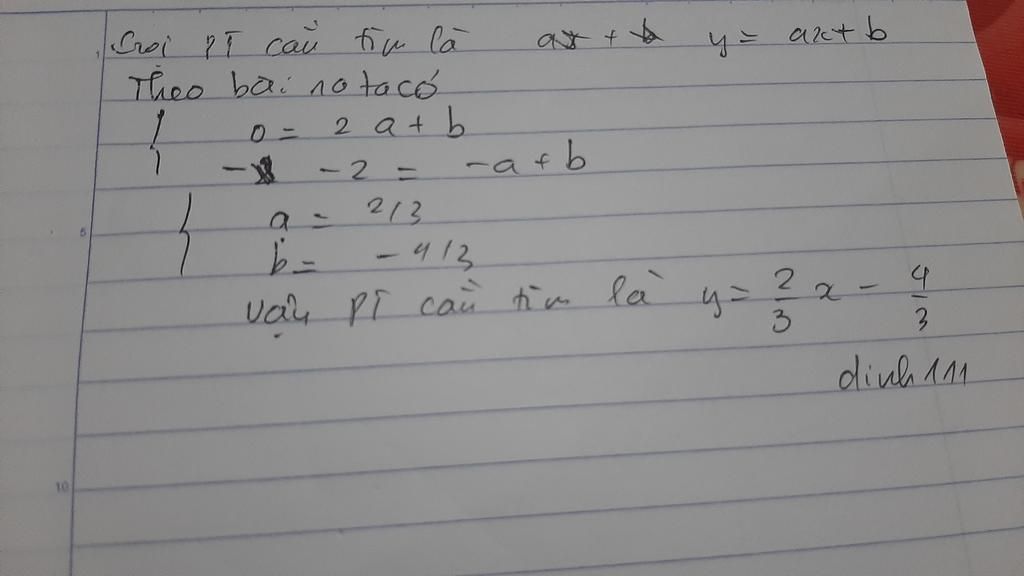 Gọi PT cần tìm là ax + b y = ax + b
Theo bài ra ta có
0 = 2 a + b
- - 2 = - a + b
a = 2/3
b = - 4/3
Vậy PT cần tìm là y = 2/3 x - 4/3
dinh 111
5
10